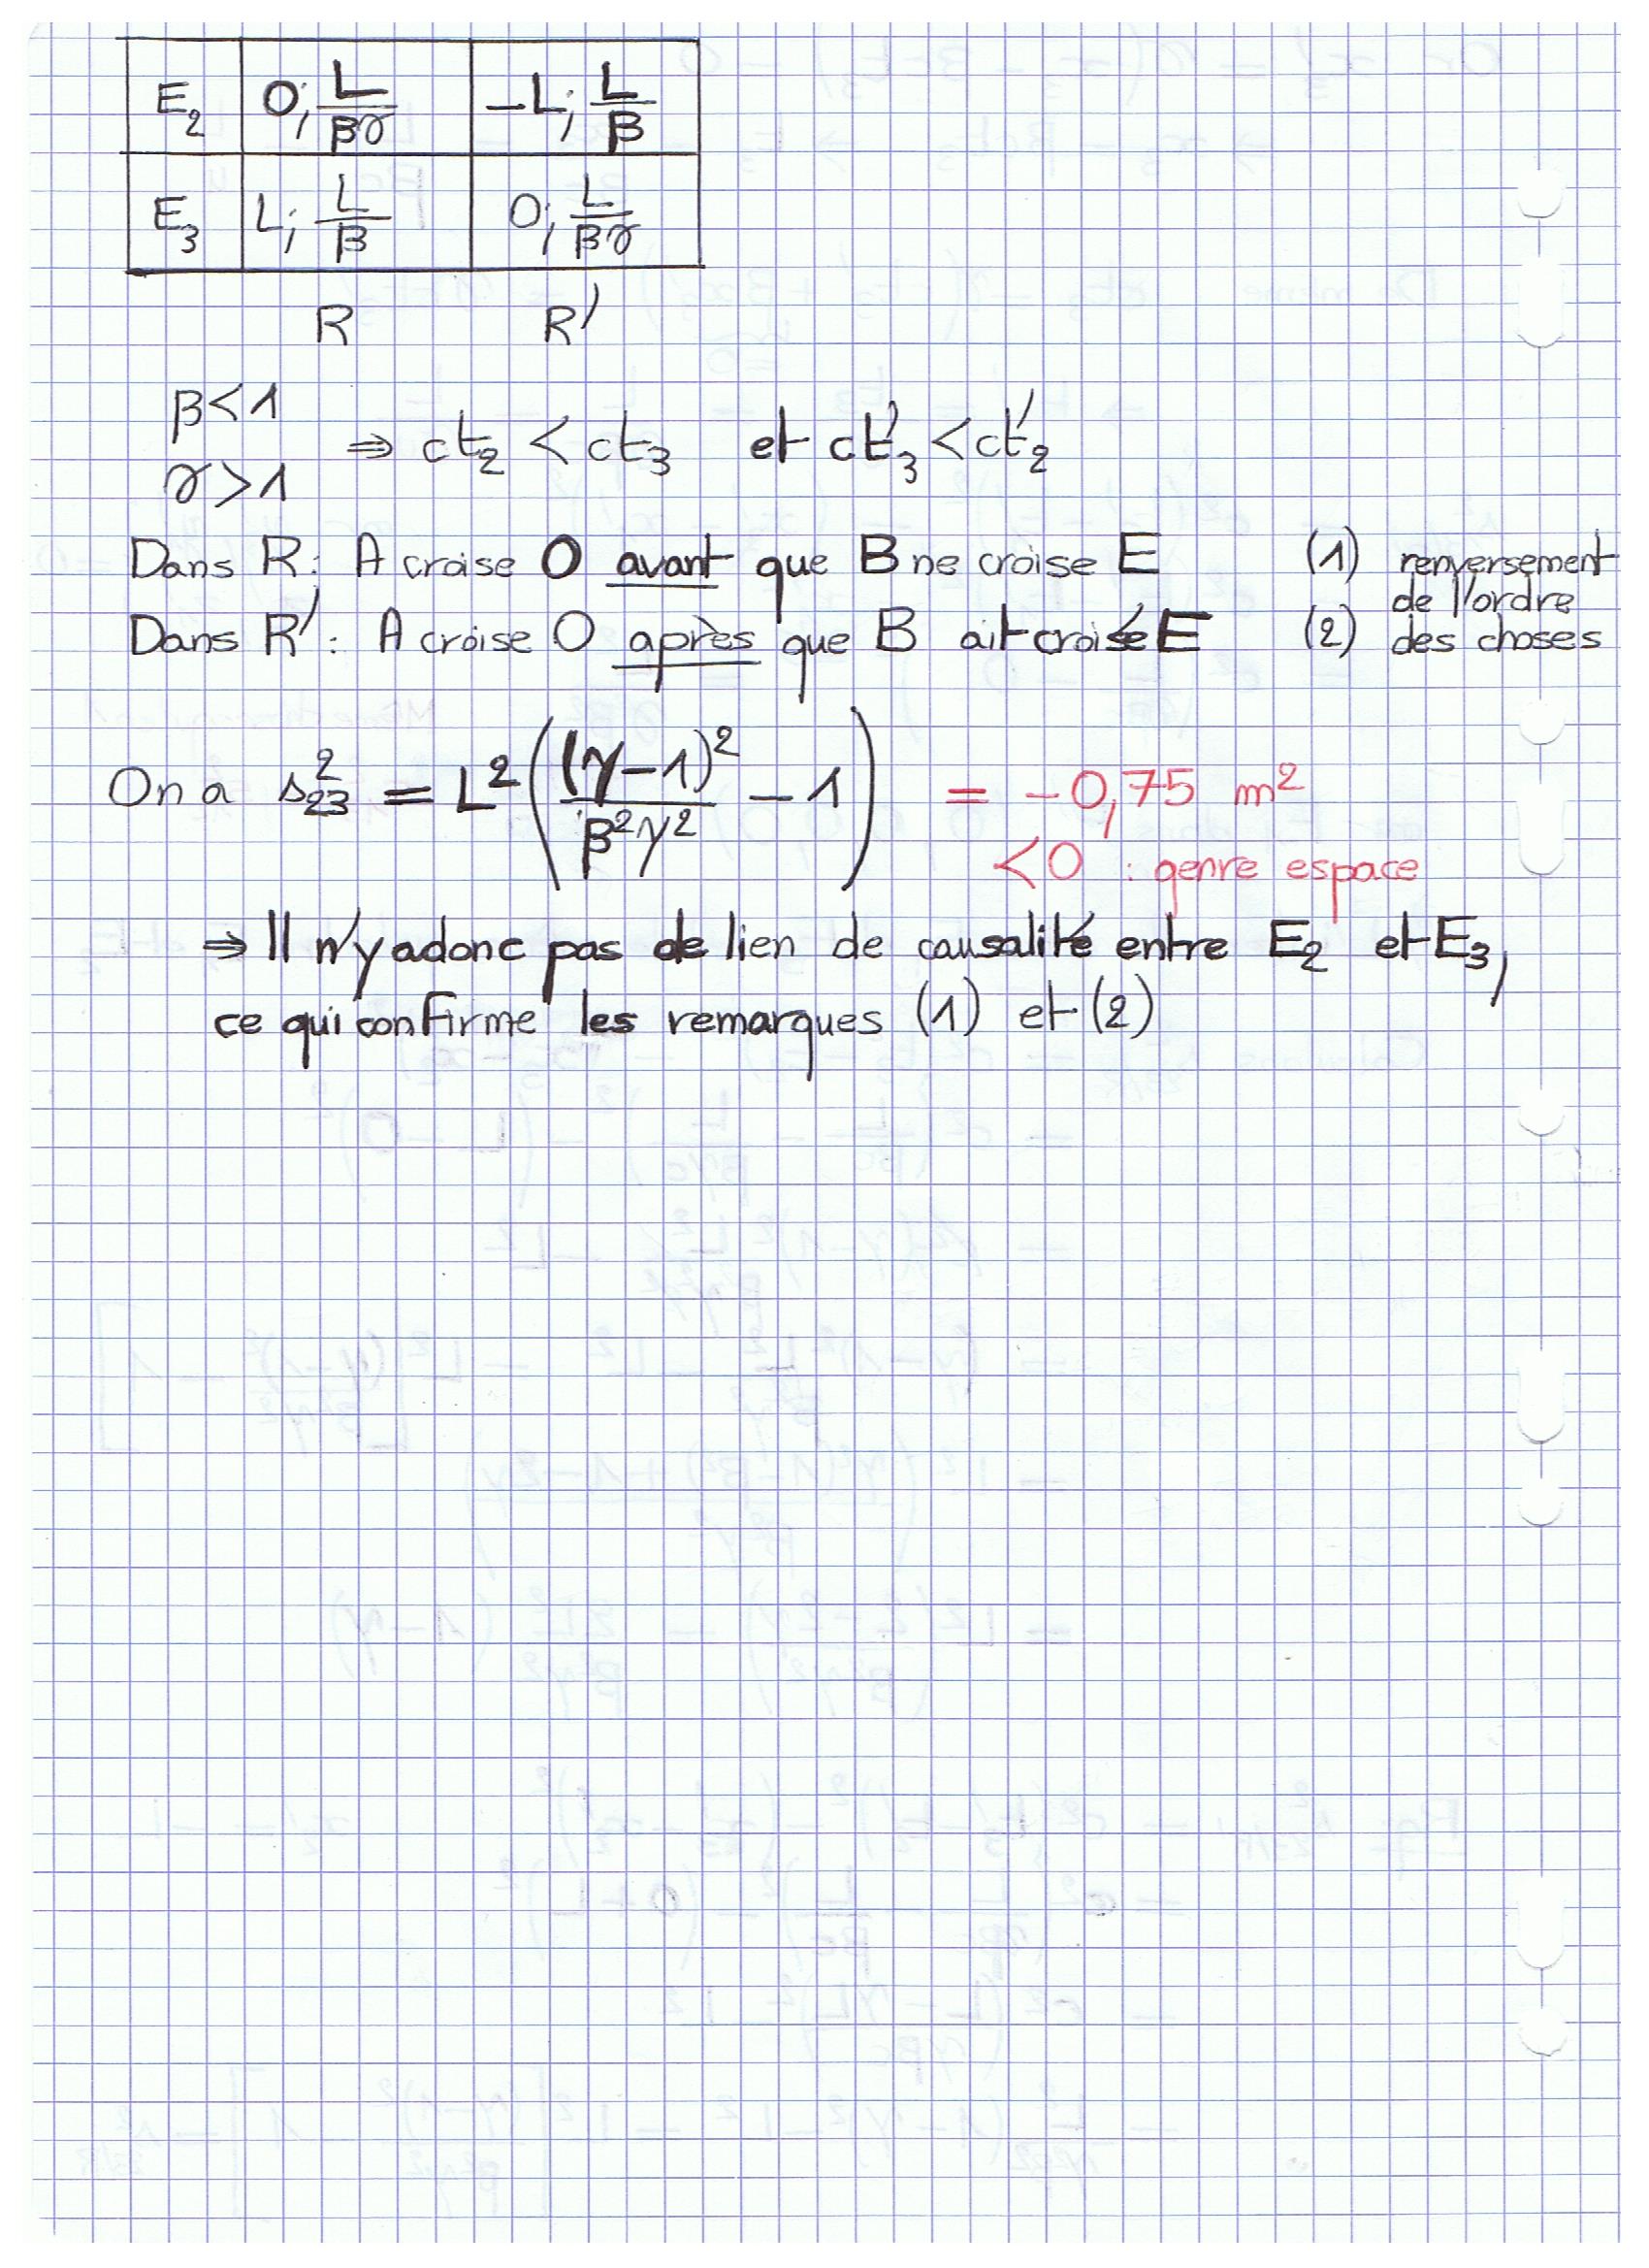 E₂ | O; L/βγ | -L; L/β
E₃ | L; L/β | O; L/βγ
R R'
β<1
γ>1
⇒ ct₂ < ct₃ et ct'₃ < ct'₂
Dans R : A croise O avant que B ne croise E (1) renversement
de l'ordre
Dans R' : A croise O après que B ait croisé E (2) des choses
On a s²₂₃ = L² ( (γ-1)² / β²γ² - 1 ) = -0,75 m²
<0 : genre espace
⇒ Il n'y a donc pas de lien de causalité entre E₂ et E₃,
ce qui confirme les remarques (1) et (2)